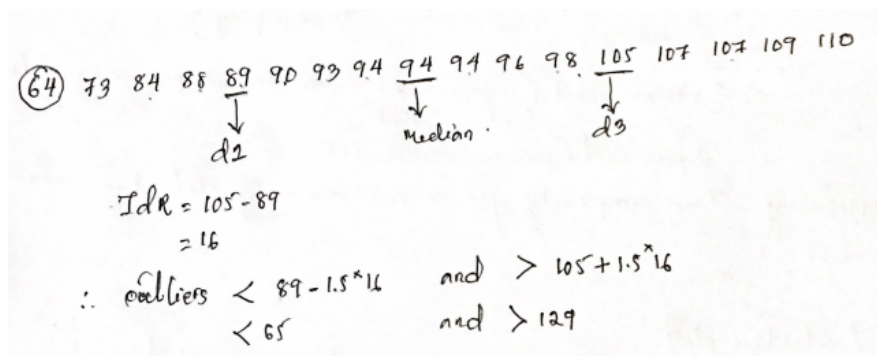 64 73 84 88 89 90 93 94 94 94 96 98 105 107 107 109 110
d1 Median. d3
IdR = 105-89
= 16
∴ outliers < 89-1.5*16 and > 105+1.5*16
< 65 and > 129